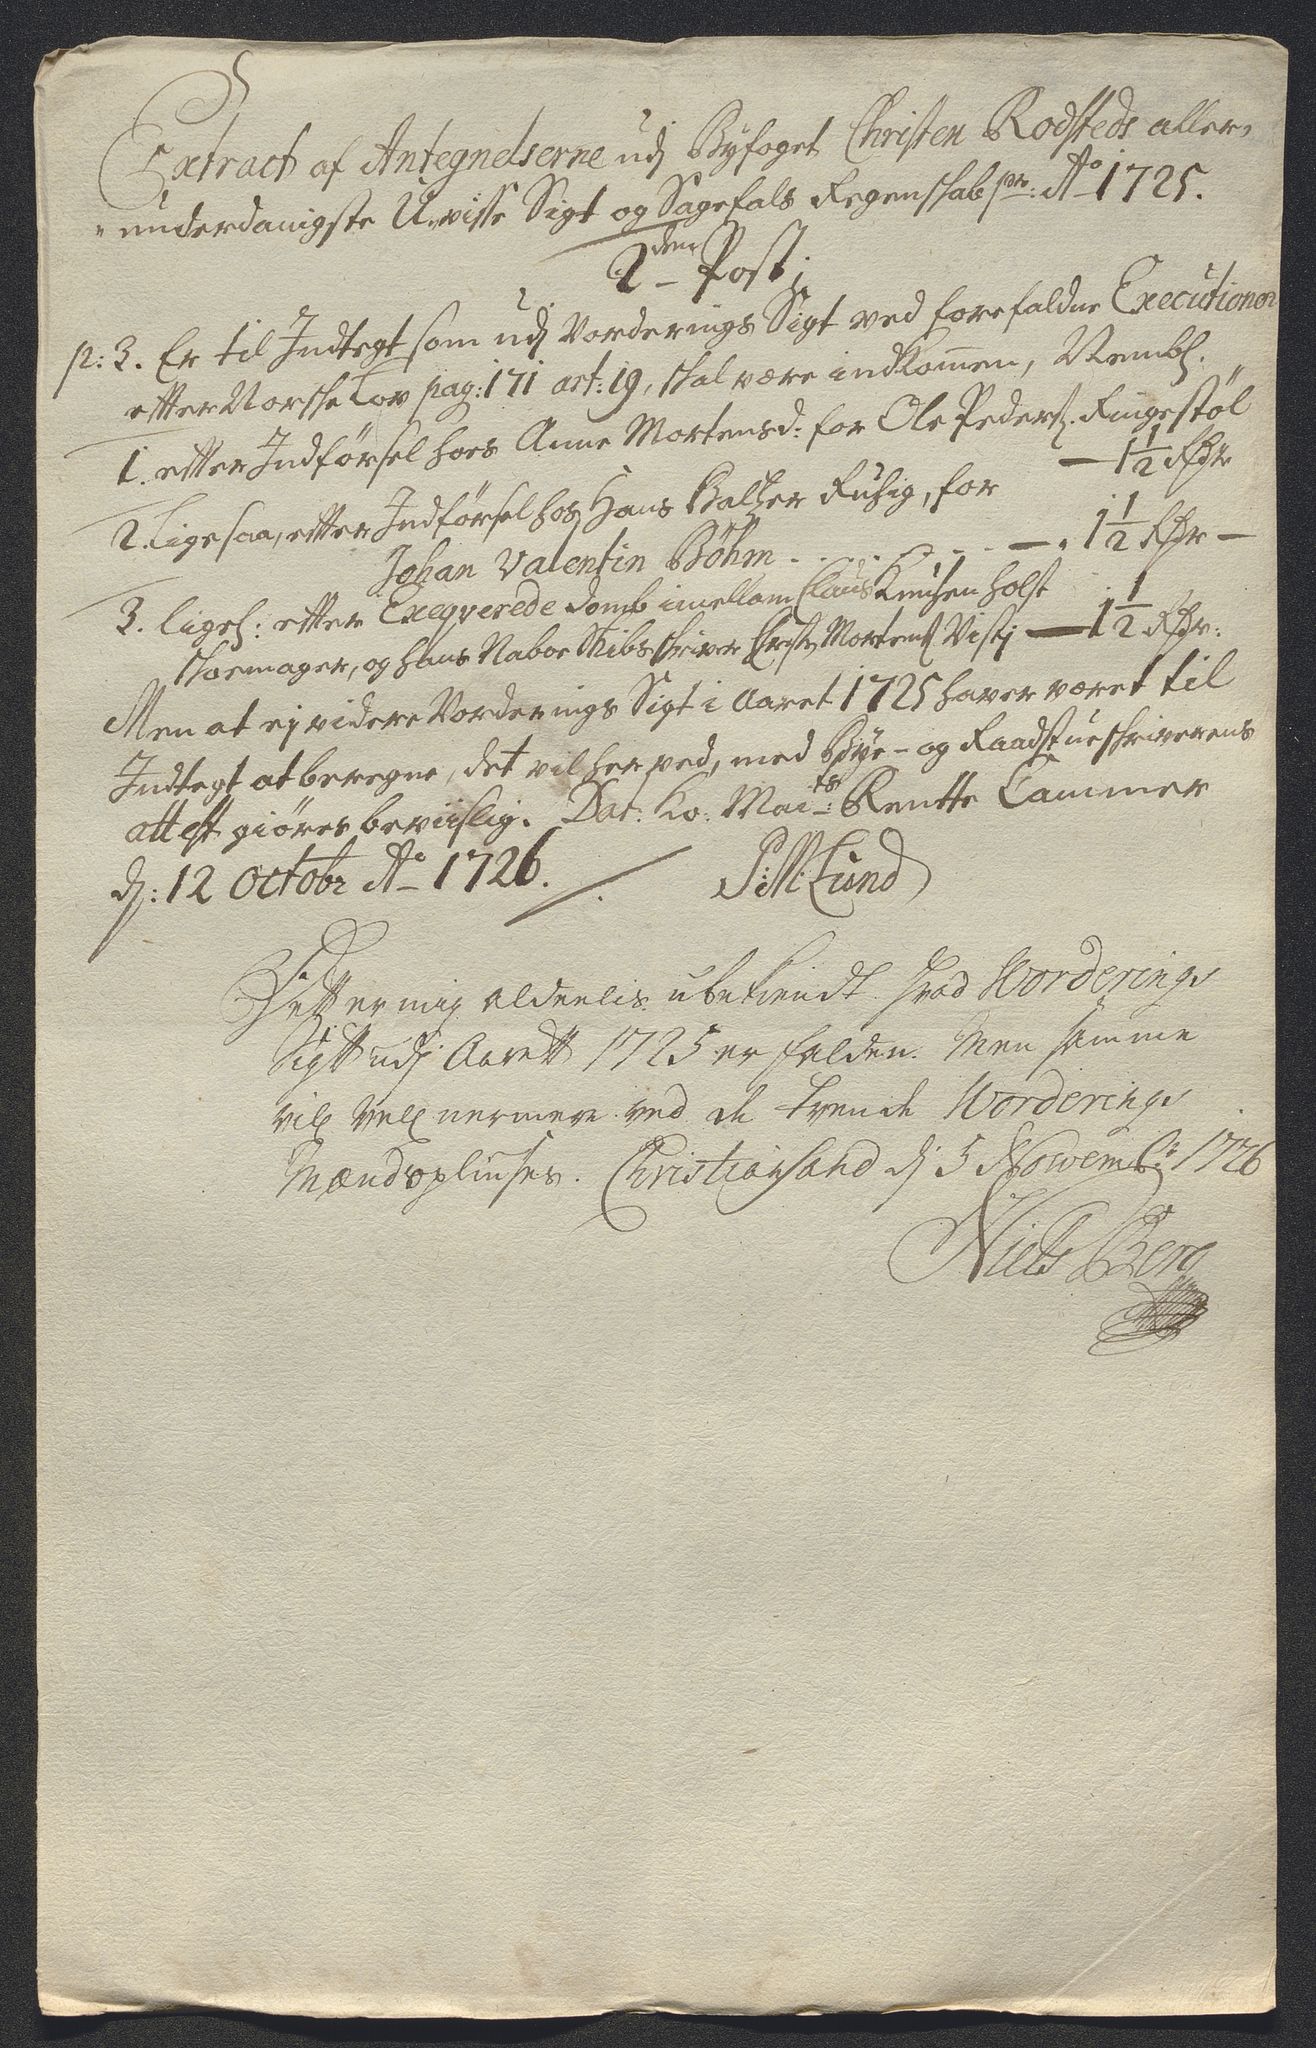 Extract af Antegnelserne udj Byfoget Christen Rodsteds aller-
underdanigste U-visse Sigt og Sagefals Regenskab pr: Ao 1725.
2den Post;
p: 3. Er til Indtegt som udj Vorderings Sigt ved forefaldne Executioner
etter Norske Lov pag: 171 art: 19, skal være indkommen, Nembl.
1. etter Indførsel hoes Anne Mortensd: for Ole Peders. Ringestøl
— 1½ Rdr
2. Ligesaa, etter Indførsel hos Hans Baltzer Rusig, for
Johan Valentin Bøhm - - - - - — 1½ Rdr —
3. ligel: etter Exeqverede Domb imellom Claus Knutzen Holst
skoemager, og hans Naboe Skibs skriver Christ Mortens Visti — 1½ Rdr:
Men at ej videre Vorderings Sigt i Aaret 1725 haver været til
Indtegt at beregne, det vil her ved, med Bye- og Raadstueskriverens
attest giøres beviislig. Dat: Ko: Maits: Rentte Cammer
dj: 12 Octobr Ao 1726.
P: M: Lund
Dett er mig aldeelis ubekiendt hvad Worderings
Sigtt udj Aarett 1725 er falden. Men samme
vill vell nermere ved de tvende Worderings
Mænd oplinses. Christiansand dj 5 Nowemb: 1726
Niels Berg